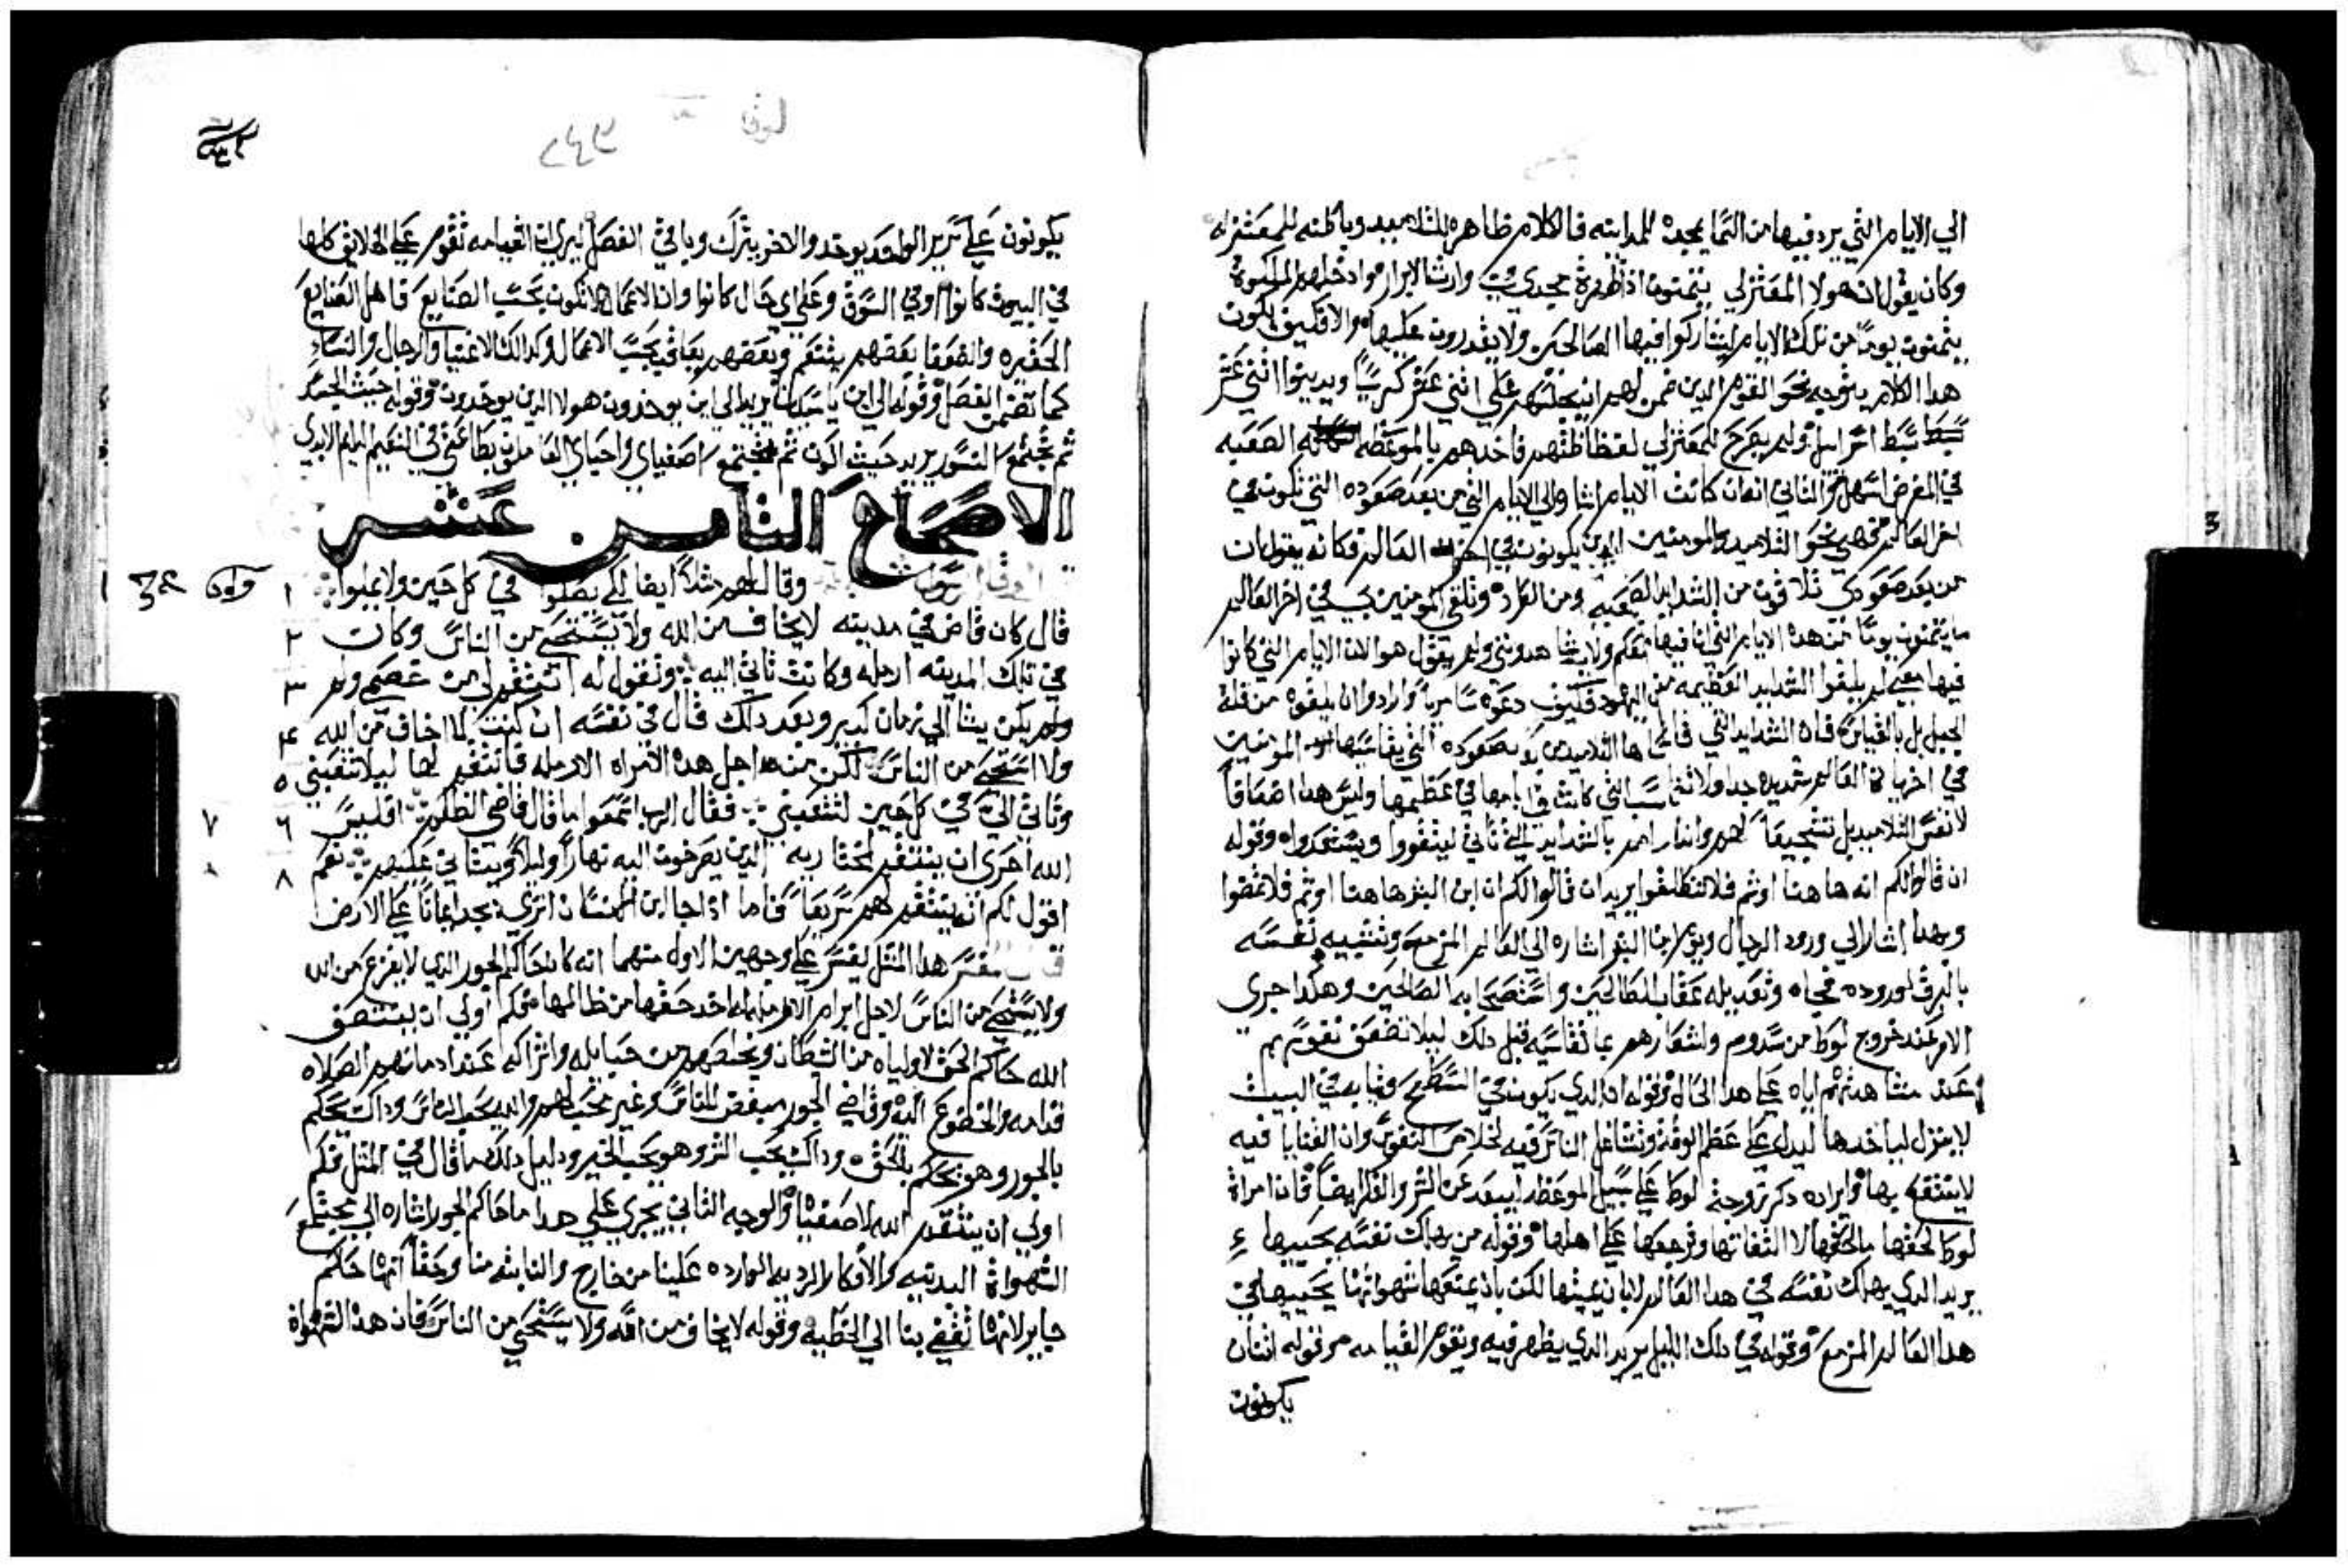 الي الايام التي يرد فيها من السما بمجده للمداينه فالكلام ظاهره للتلاميد وباطنه للمعتزله
وكان يقول ان هولا المعتزلي يتمنون اذا ظهرة بمجدي وارث الابرار وادخلهم الملكوة
يتمنون يوما من تلك الايام ليشاركوا فيها الصالحين ولا يقدرون عليها والا فكيف يكون
هدا الكلام يتوجه نحو القوم الدين ضمن لهم ان يجلسهم علي اثني عشر كرسيا ويدينوا اثني عشر
سبط اسرايل ولم يصرح للمعتزلي لفظاظتهم فاخدهم بالموعظه الصعبه
في المعرض اسهل والثاني انه ان كانت الايام اشا والي الايام التي من بعد صعوده التي تكون في
اخر العالم فهي نحو التلاميد والمومنين الدين يكونون في اخر العالم فكانه يقول ان
من بعد صعودي تلاقون من الشدايد الصعبه ومن الطرد وتلقي المومنين بي في اخر العالم
ما يتمنون يوما من هده الايام التي انا فيها معكم ولا يشاهدونني ولم يقول هو الان الايام التي كانوا
فيها معي لم يلقوا الشدايد العظيمه من اليهود فكيف دعوه سامريا وارادوا ان يلقوه من قلة
الجبل بل بالقياس فان الشدايد التي قاساها التلاميد من بعد صعوده التي يقاسيها المومنين
في اخرها في العالم شديده جدا ولا تناسب التي كانت في ايامها في عظيمها وليس هدا اضعافا
لانفس التلاميد بل تشجيعا لهم وانداراهم بالشدايد التي تاتي ليتقووا ويستعدوا وقوله
ان قالوا لكم انه هاهنا او ثم فلا تنطلقوا يريد ان قالوا لكم ان ابن البشر هاهنا او ثم فلا تمضوا
وبهدا اشار الي ورود الدجال ويوم ابن البشر اشاره الي العالم المزمع وتشبيه نفسه
بالبرق لوروده فجاه وتعديله عقاب الطالحين واستصحابه الصالحين وهكدا جري
الامر عند خروج لوط من سدوم واشعارهم بما تقاسيه قبل دلك ليلا تضعف نفوسهم
عند مشاهدتهم اياه علي هدا الحال وقوله ان الدي يكون في السطح وثيابه في البيت
لا ينزل لياخدها ليدل علي عظم الوقت وتشاغل الناس فيه لخلاص النفوس وان القنايا فيه
لا ينتفع بها وايراده دكر زوجة لوط علي سبيل الموعظه ليبعد عن الشر والفكر ايضا فان امراة
لوط لحقها ما لحقها لالتفاتها ورجوعها علي اهلها وقوله من يهلك نفسه يحييها
يريد الدي يهلك نفسه في هدا العالم لا بان يميتها لكن بان يمنعها شهواتها يحييها في
هدا العالم المزمع وقوله في دلك الليل يريد الدي يظهر فيه ويقوم القيامه وقوله اثنان
يكونون
لوقا
٢٤٢
يكونون علي سرير الواحد يوخد والاخر يترك وباقي الفصل ليري ان القيامه تقوم علي الخلايق كلها
في البيوت كانوا او في السوق وعلي اي حال كانوا وان الاعمال لا تكون بحسب الصنايع فاهل الصنايع
الحقيره والضعفا بعضهم يتنعم وبعضهم يعاقب بحسب الاعمال وكدالك الاغنيا والرجال والنساء
كما تضمن الفصل وقوله الي اين ياسيدنا يريد الي اين يوخدون هولا الدين يوخدون وقوله حيث الجسد
ثم تجتمع النسور يريد حيث اكون ثم تجتمع اصفياي واحباي العاملون بطاعتي في النعيم الدايم الابدي
الاصحاح الثامن عشر
وقال لهم مثلا ايضا لكي يصلوا في كل حين ولا يملوا ١
قال كان قاض في مدينه لا يخاف من الله ولا يستحي من الناس وكان ٢
في تلك المدينه ارمله وكانت تاتي اليه وتقول له انتقم لي من خصمي ولم ٣
ولم يكن يشا الي زمان كبير وبعد دلك قال في نفسه ان كنت لا اخاف من الله ٤
ولا استحي من الناس لكن من اجل هده الامراه الارمله فانتقم لها ليلا تتعبني ٥
وتاتي الي في كل حين لتتعبني فقال الرب اسمعوا ما قال قاضي الظلم افليس ٦ ٧
الله احري ان ينتقم لمختاريه الدين يصرخون اليه نهارا وليلا ويتاني عليهم نعم ٨
اقول لكم انه ينتقم لهم سريعا فاما اذا جا ابن الانسان اتري يجد ايمانا علي الارض
مفسر هدا المثل يفسر علي وجهين الاول منهما انه كان حاكم الجور الدي لا يفزع من الله
ولا يستحي من الناس لاجل ابرام الارمله اخد حقها من ظالمها فكم اولي ان ينتصف
الله حاكم الحق لاولياه من الشيطان ويخلصهم من حبايله واشراكه عند ادمانهم الصلاه
قدامه والخضوع اليه وقاضي الجور مبغض للناس وغير محب لهم والله يحب الناس وداك يحكم
بالجور وهو يحكم بالحق وداك يحب الشر وهو يحب الخير ودليل دلك ما قال في المثل فكم
اولي ان ينتقم الله لاصفياه والوجه الثاني يجري علي هدا ما حاكم الجور اشاره الي مجتمع
الشهواة البدنيه والافكار الرديه الوارده علينا من خارج والنابته منا وحقا انها حاكم
جاير لانها تفضي بنا الي الخطيه وقوله لا يخاف من الله ولا يستحي من الناس فان هده الشهواة